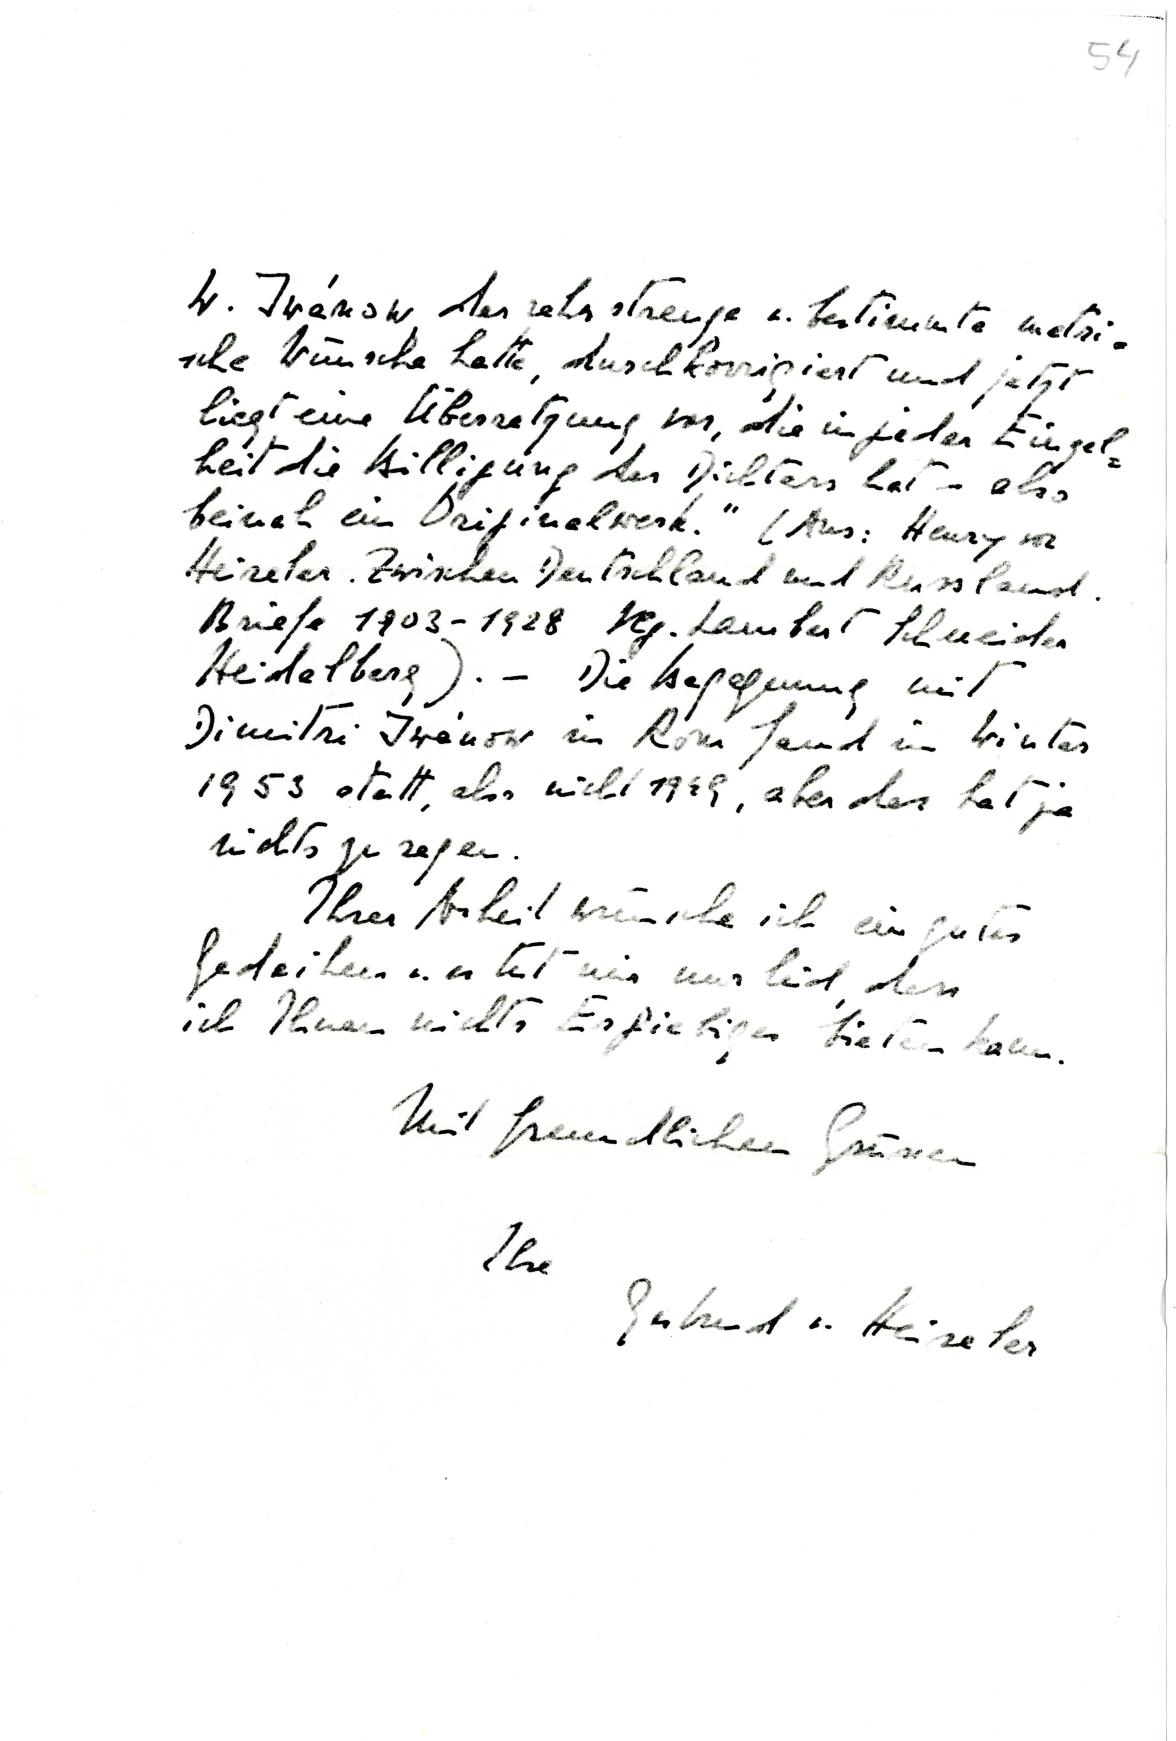 54
W. Iwánow, der sehr strenge u. bestimmte metri-
sche Wünsche hatte, durchkorrigiert und jetzt
liegt eine Übersetzung vor, die in jeder Einzel=
heit die Billigung des Dichters hat - also
beinah ein Originalwerk." (Aus: Henry von
Heiseler. Zwischen Deutschland und Russland.
Briefe 1903-1928 Vlg. Lambert Schneider
Heidelberg). - Die Begegnung mit
Dimitri Iwánow in Rom fand im Winter
1953 statt, also nicht 1949, aber das hat ja
nichts zu sagen.
Ihrer Arbeit wünsche ich ein gutes
Gedeihen u. es tut mir nur leid, dass
ich Ihnen nichts Ergiebiges bieten kann.
Mit freundlichen Grüssen
Ihre
Gertrud v. Heiseler